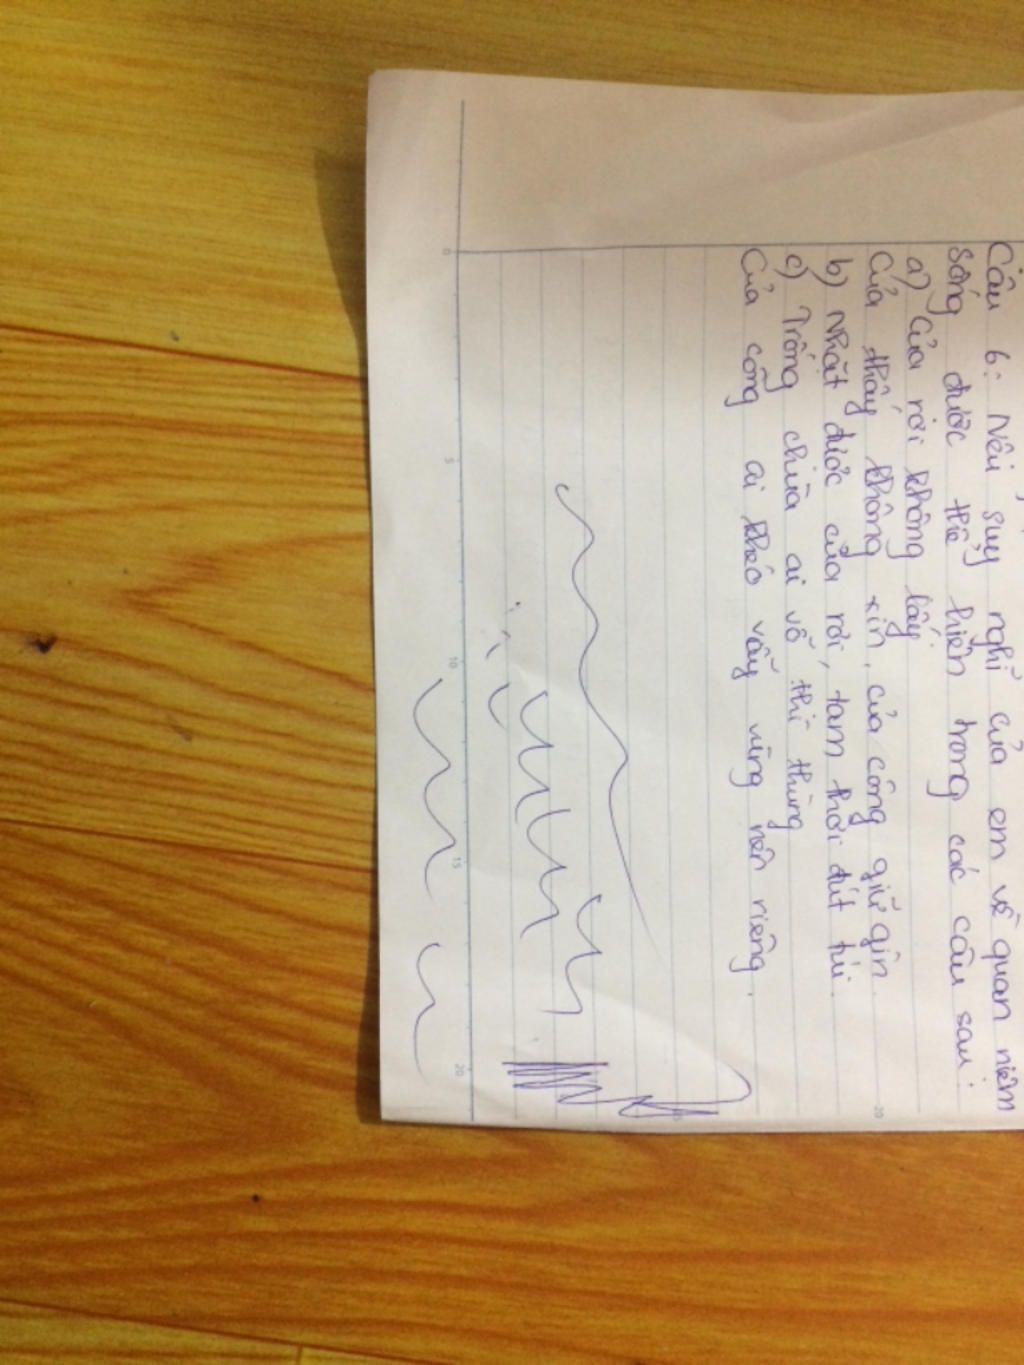 Câu 6: Nêu suy nghĩ của em về quan niệm
sống được thể hiện trong các câu sau:
a) Của rơi không lấy
Của thầy không xin, của công giữ gìn.
b) Nhặt được của rơi, tạm thời đút túi.
c) Trống chùa ai vỗ thì thùng
Của công ai khéo vẫy vùng nên riêng.
0
5
10
15
20
20